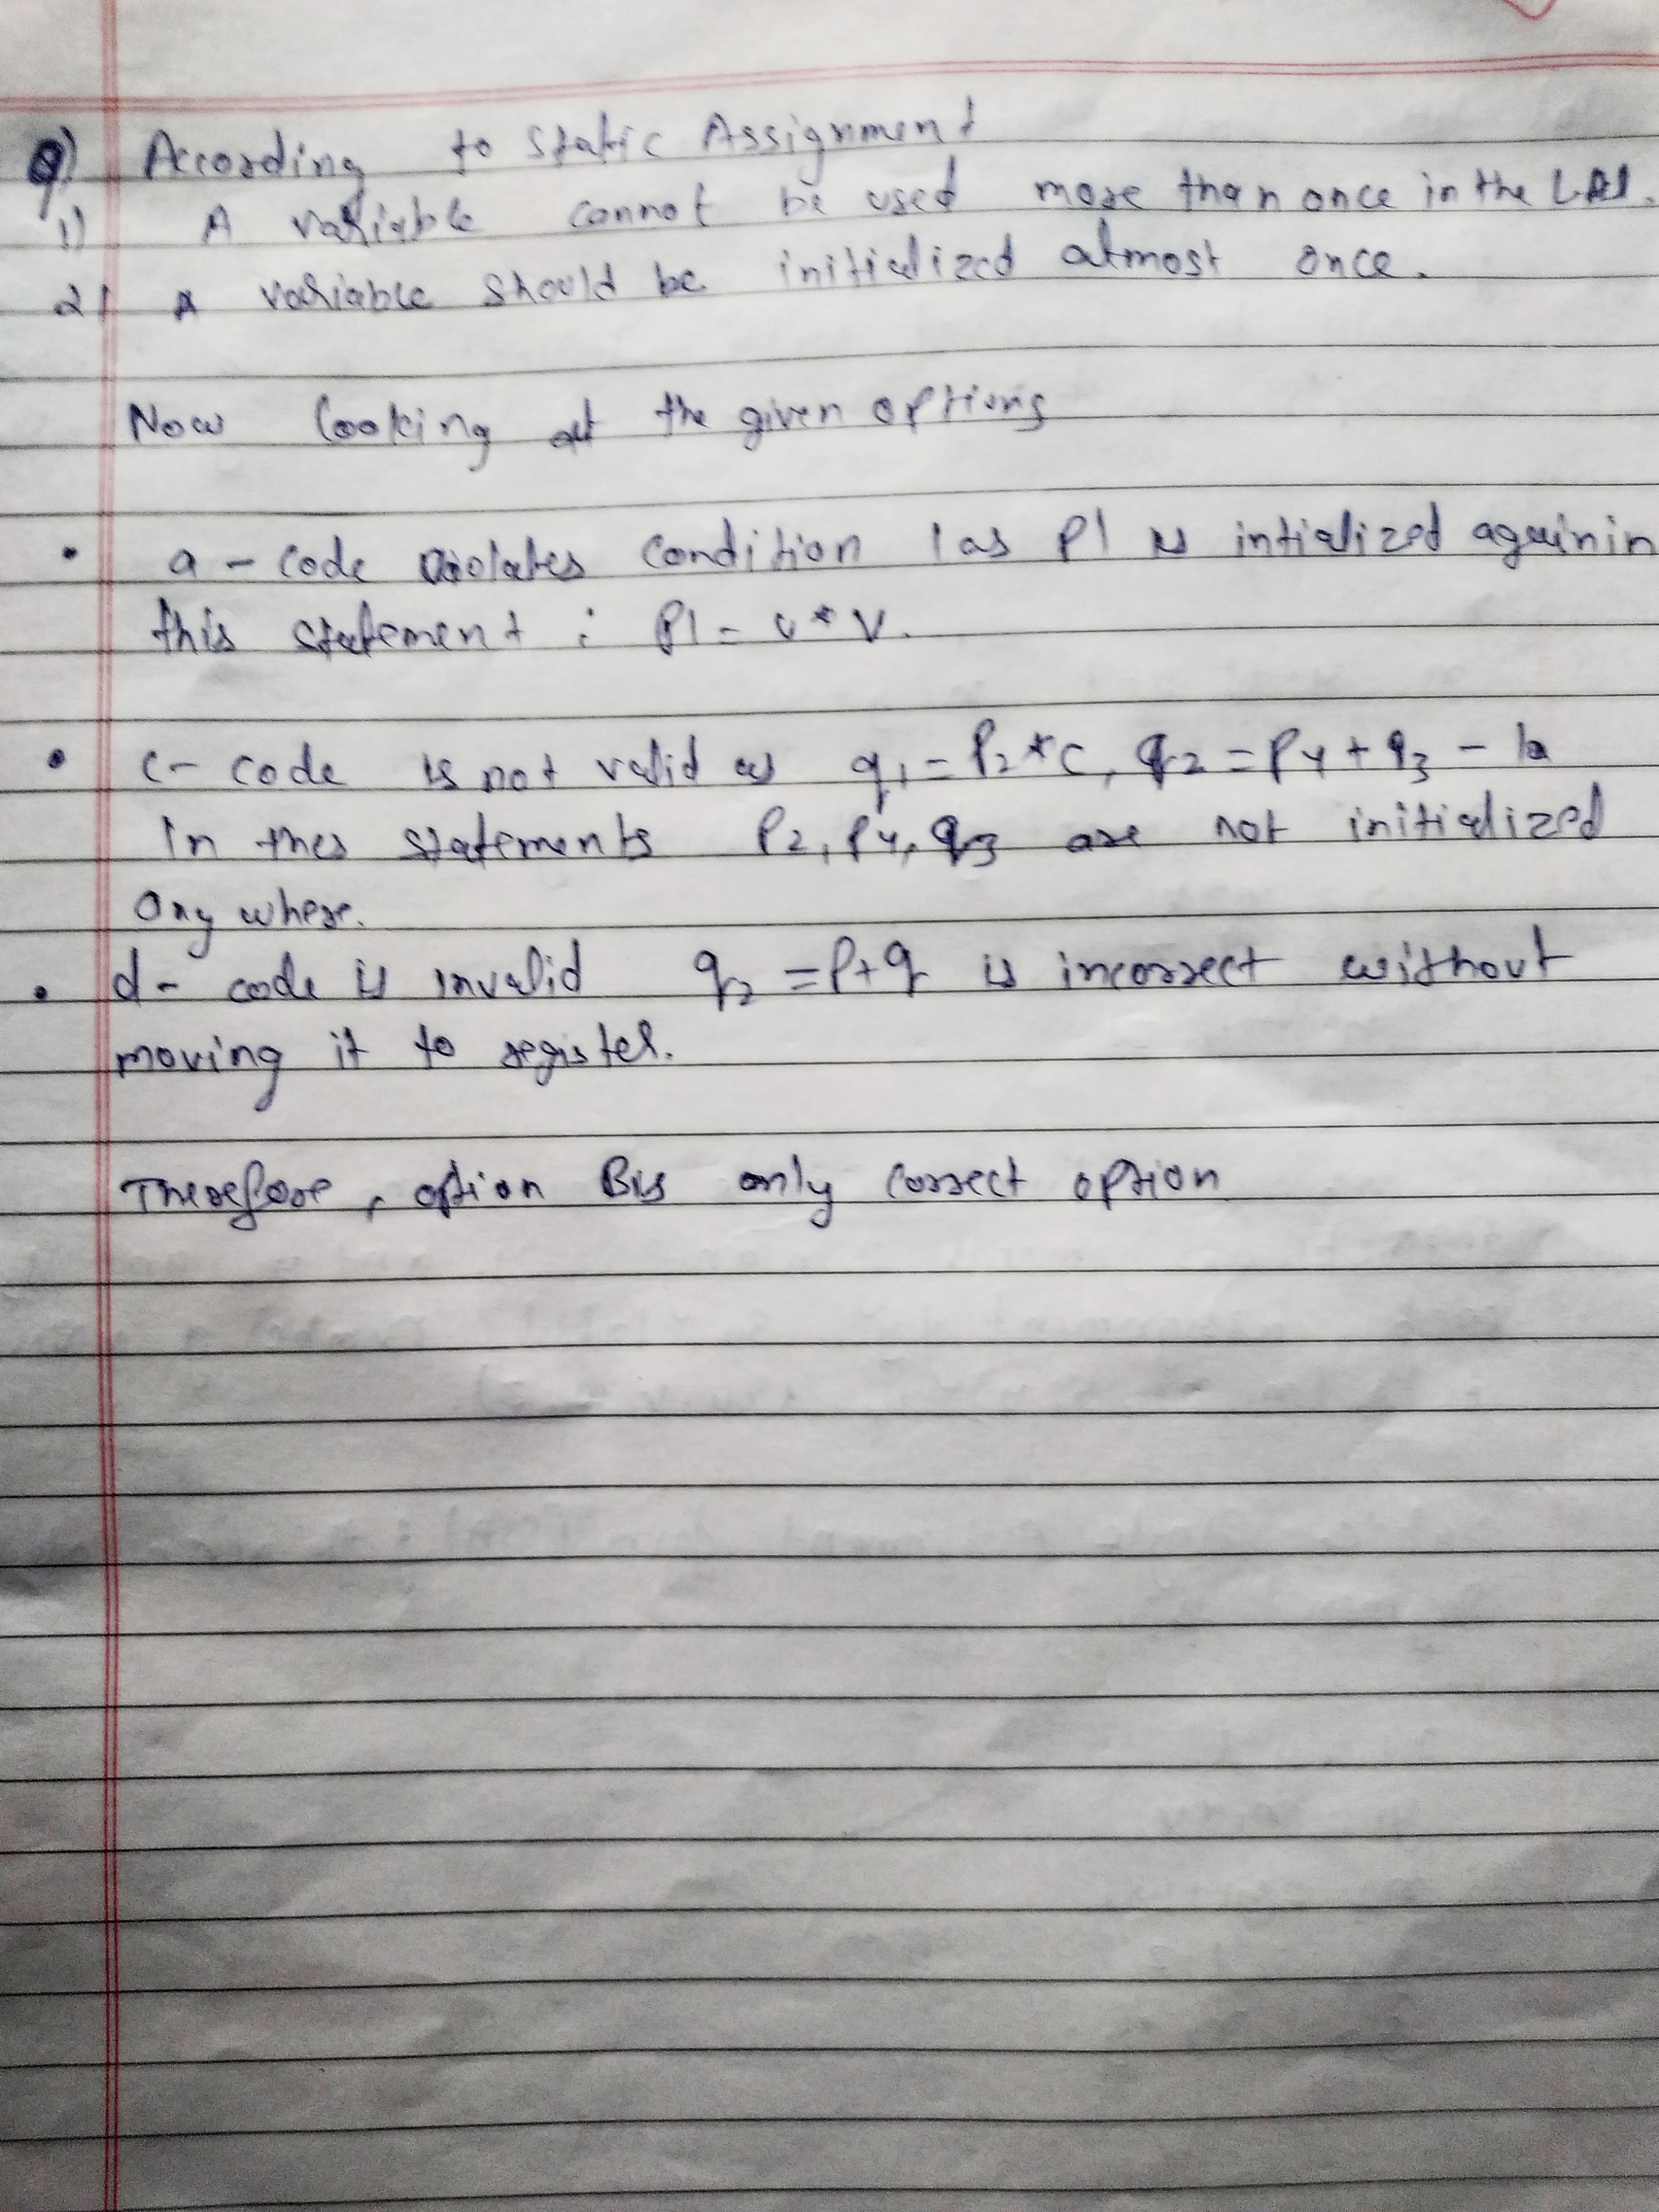 9) According to Static Assignment
1) A variable cannot be used more than once in the L.H.S.
2) A variable should be initialized atmost once.
Now looking at the given options
• a - code violates condition 1 as P1 is intialized again in
this statement : P1 = u * v.
• c - code is not valid as q1 = P2 * c, q2 = P4 + q3 - b
in thes statements P2, P4, q3 are not initialized
any where.
• d - code is invalid q2 = P + q is incorrect without
moving it to register.
Therefore, option B is only correct option